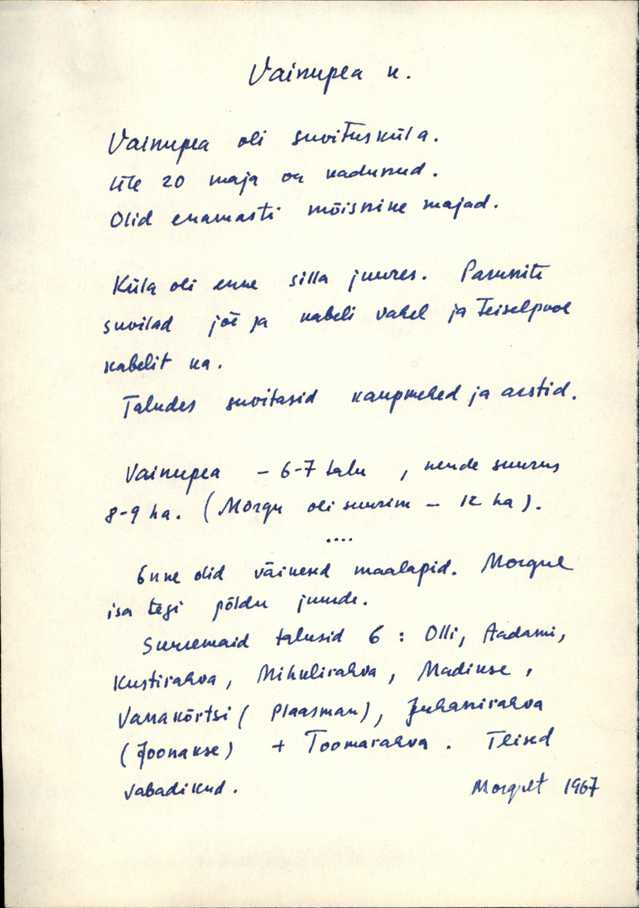 Vainupea k.
Vainupea oli suvitusküla.
Üle 20 maja on kadunud.
Olid enamasti mõisnike majad.
Küla oli enne silla juures. Parunite
suvilad jõe ja kabeli vahel ja teiselpool
kabelit ka.
Taludes suvitasid kaupmehed ja arstid.
Vainupea – 6-7 talu, nende suurus
8-9 ha. (Morgu oli suurim – 12 ha).
....
Enne olid väikesed maalapid. Morgul
isa tegi põldu juurde.
Suuremaid talusid 6: Olli, Aadami,
Kustirahva, Mihulirahva, Madikse,
Vanakõrtsi (Plaasman), Juhanirahva
(Joonakse) + Toomarahva. Teised
vabadikud. Morgult 1967